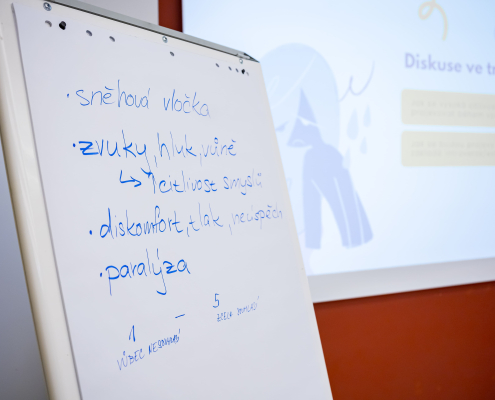 • sněhová vločka
• zvuky, hluk, vůně
↳ citlivost smyslů
• diskomfort, tlak, neúspěch
• paralýza
1 – 5
VŮBEC NESOUHLASÍ
Diskuse ve